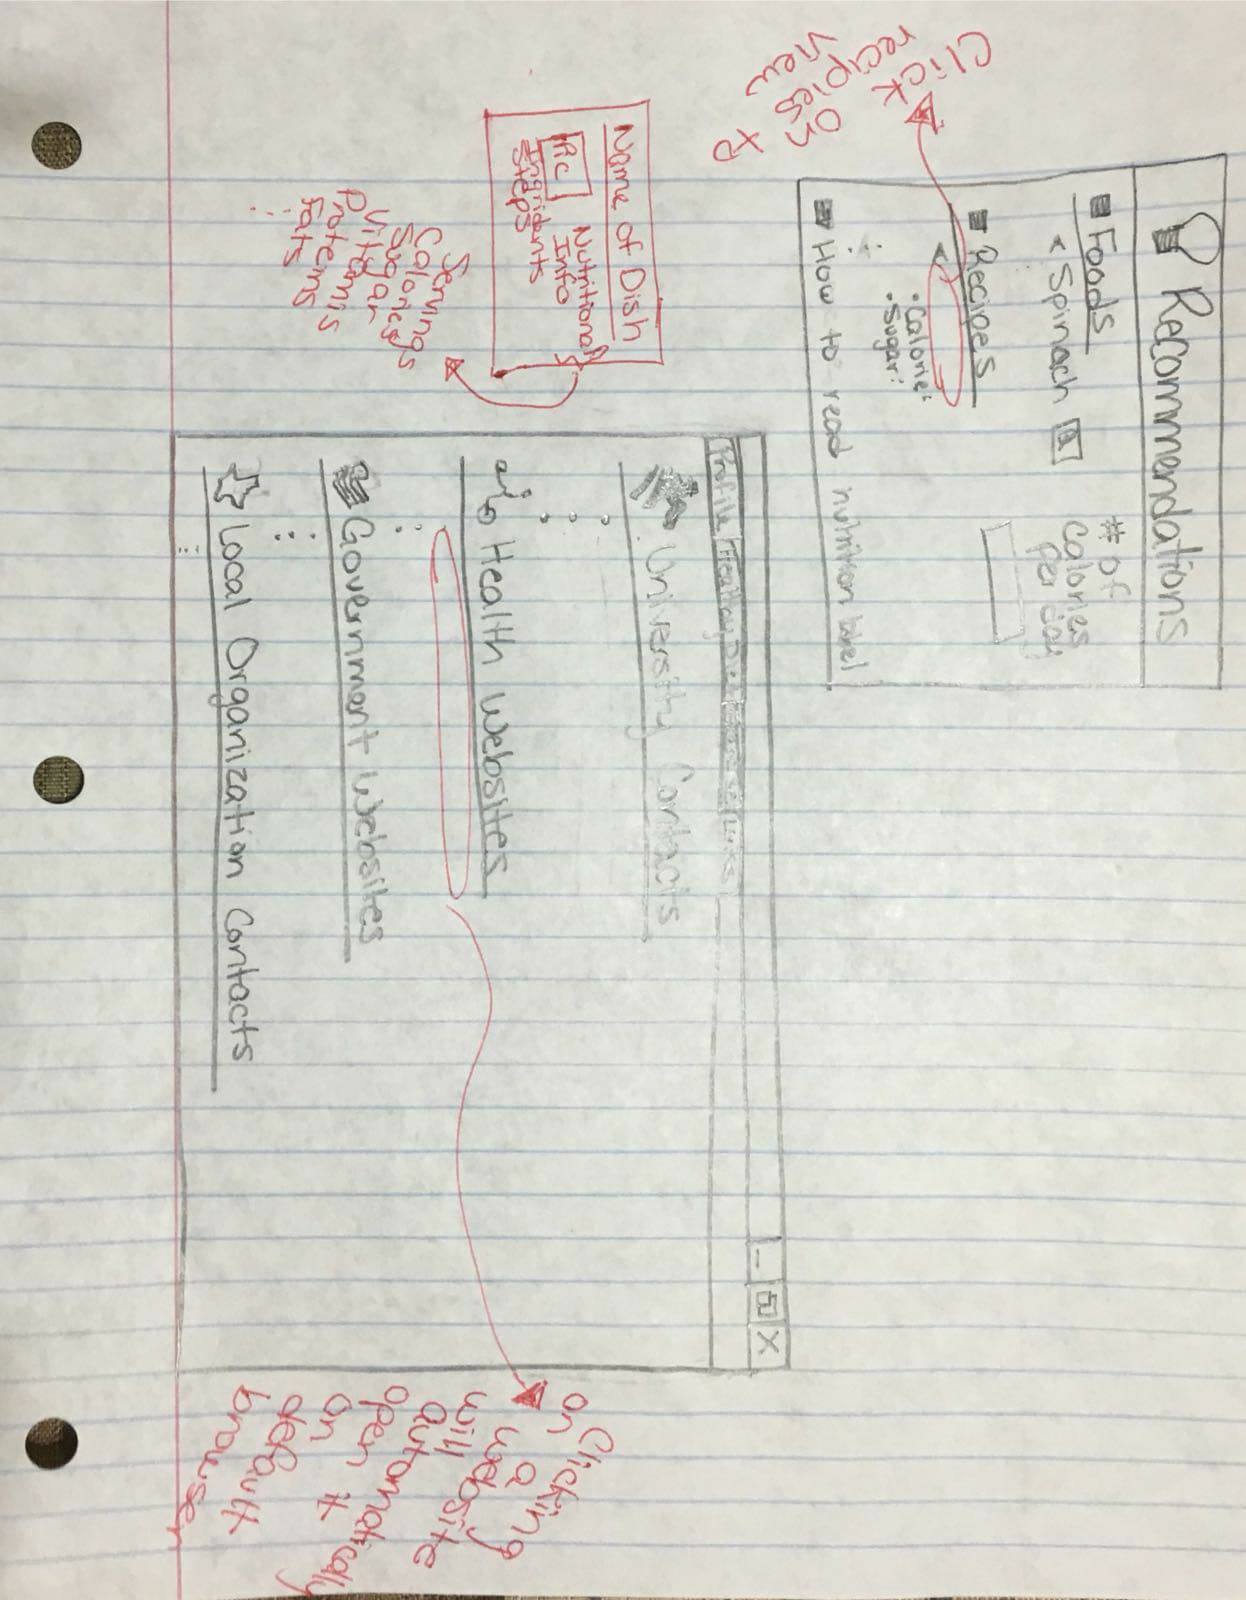 Recommendations
Foods
< Spinach
# of
Calories
Per day
Recipes
• Calories
• Sugar
How to read nutrition label
Click
on
recipies to
view
Name of Dish
Pic
Nutritional
Info
Ingridents
Steps
Servings
Calories
Sugar
Vitamis
Proteins
Fats
_ X
Profile
University Contacts
Health Websites
Government Websites
Local Organization Contacts
Clicking
on a website
will
automatically
open it
on
default
browser